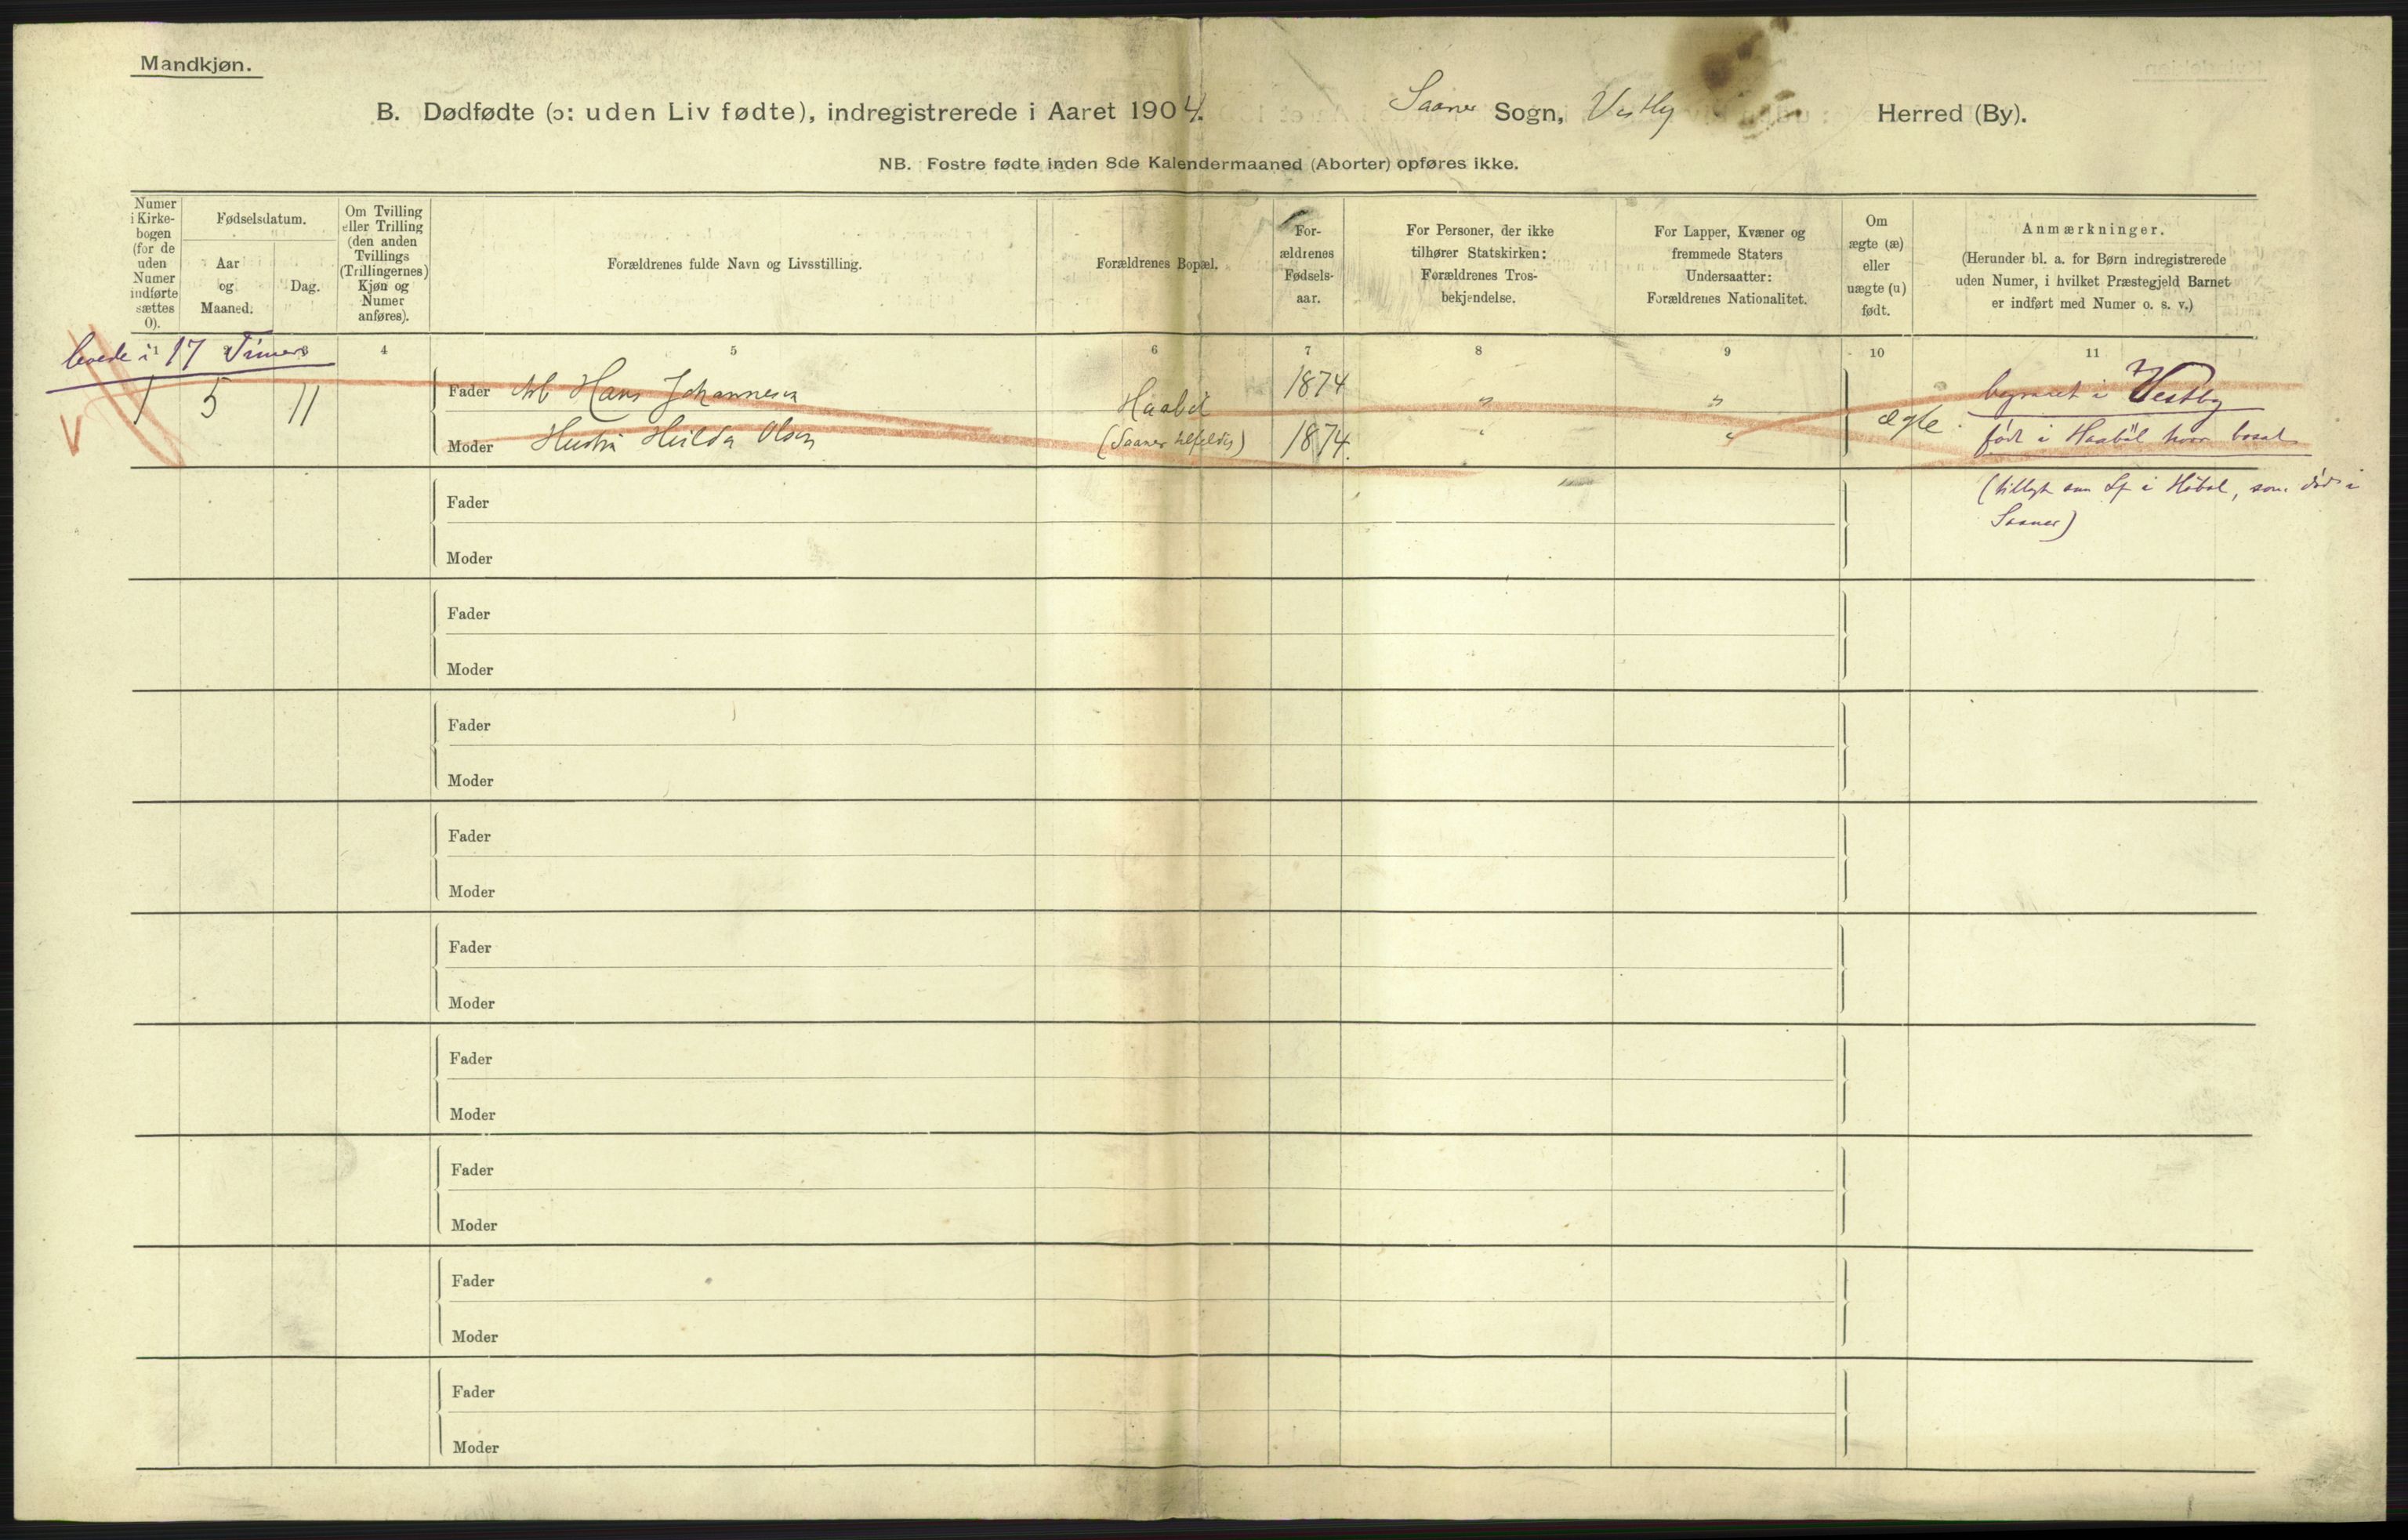 Mandkjøn.
B. Dødfødte (ɔ: uden Liv fødte), indregistrerede i Aaret 1904. Saaner Sogn, Vestby Herred (By).
NB. Fostre fødte inden 8de Kalendermaaned (Aborter) opføres ikke.
Numer
i Kirke-
bogen
(for de
uden
Numer
indførte
sættes
0).
Fødselsdatum.
Aar
og
Maaned.
Dag.
Om Tvilling
eller Trilling
(den anden
Tvillings
(Trillingernes)
Kjøn og
Numer
anføres).
Forældrenes fulde Navn og Livsstilling.
Forældrenes Bopæl.
For-
ældrenes
Fødsels-
aar.
For Personer, der ikke
tilhører Statskirken:
Forældrenes Tros-
bekjendelse.
For Lapper, Kvæner og
fremmede Staters
Undersaatter:
Forældrenes Nationalitet.
Om
ægte (æ)
eller
uægte (u)
født.
Anmærkninger.
(Herunder bl. a. for Børn indregistrerede
uden Numer, i hvilket Præstegjeld Barnet
er indført med Numer o. s. v.)
1 2 3 4 5 6 7 8 9 10 11
levede i 17 Timer
1 5 11
Fader Arb Hans Johannesen
Moder Hustru Hilda Olsen
Haabøl
(Saaner tilfeldig)
1874
1874.
" "
" "
ægte
begravet i Vestby
født i Haabøl hvor bosat
(tillagt som Lf i Håbøl, som død i
Saaner)
Fader
Moder
Fader
Moder
Fader
Moder
Fader
Moder
Fader
Moder
Fader
Moder
Fader
Moder
Fader
Moder
Fader
Moder